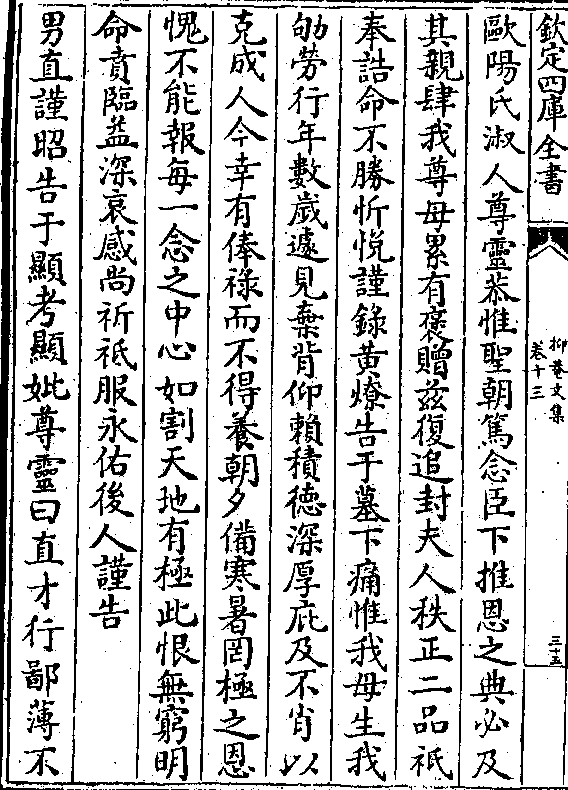 欽定四庫全書
抑菴文集
卷十三
三十五
歐陽氏淑人尊靈恭惟聖朝篤念臣下推恩之典必及
其親肆我尊母累有襃贈兹復追封夫人秩正二品祗
奉誥命不勝忻悦謹錄黄燎告于墓下痛惟我母生我
劬勞行年數歲遽見棄背仰賴積德深厚庇及不肖以
克成人今幸有俸祿而不得養朝夕備寒暑罔極之恩
愧不能報每一念之中心如割天地有極此恨無窮明
命賁臨益深哀感尚祈祗服永佑後人謹告
男直謹昭告于顯考顯妣尊靈曰直才行鄙薄不